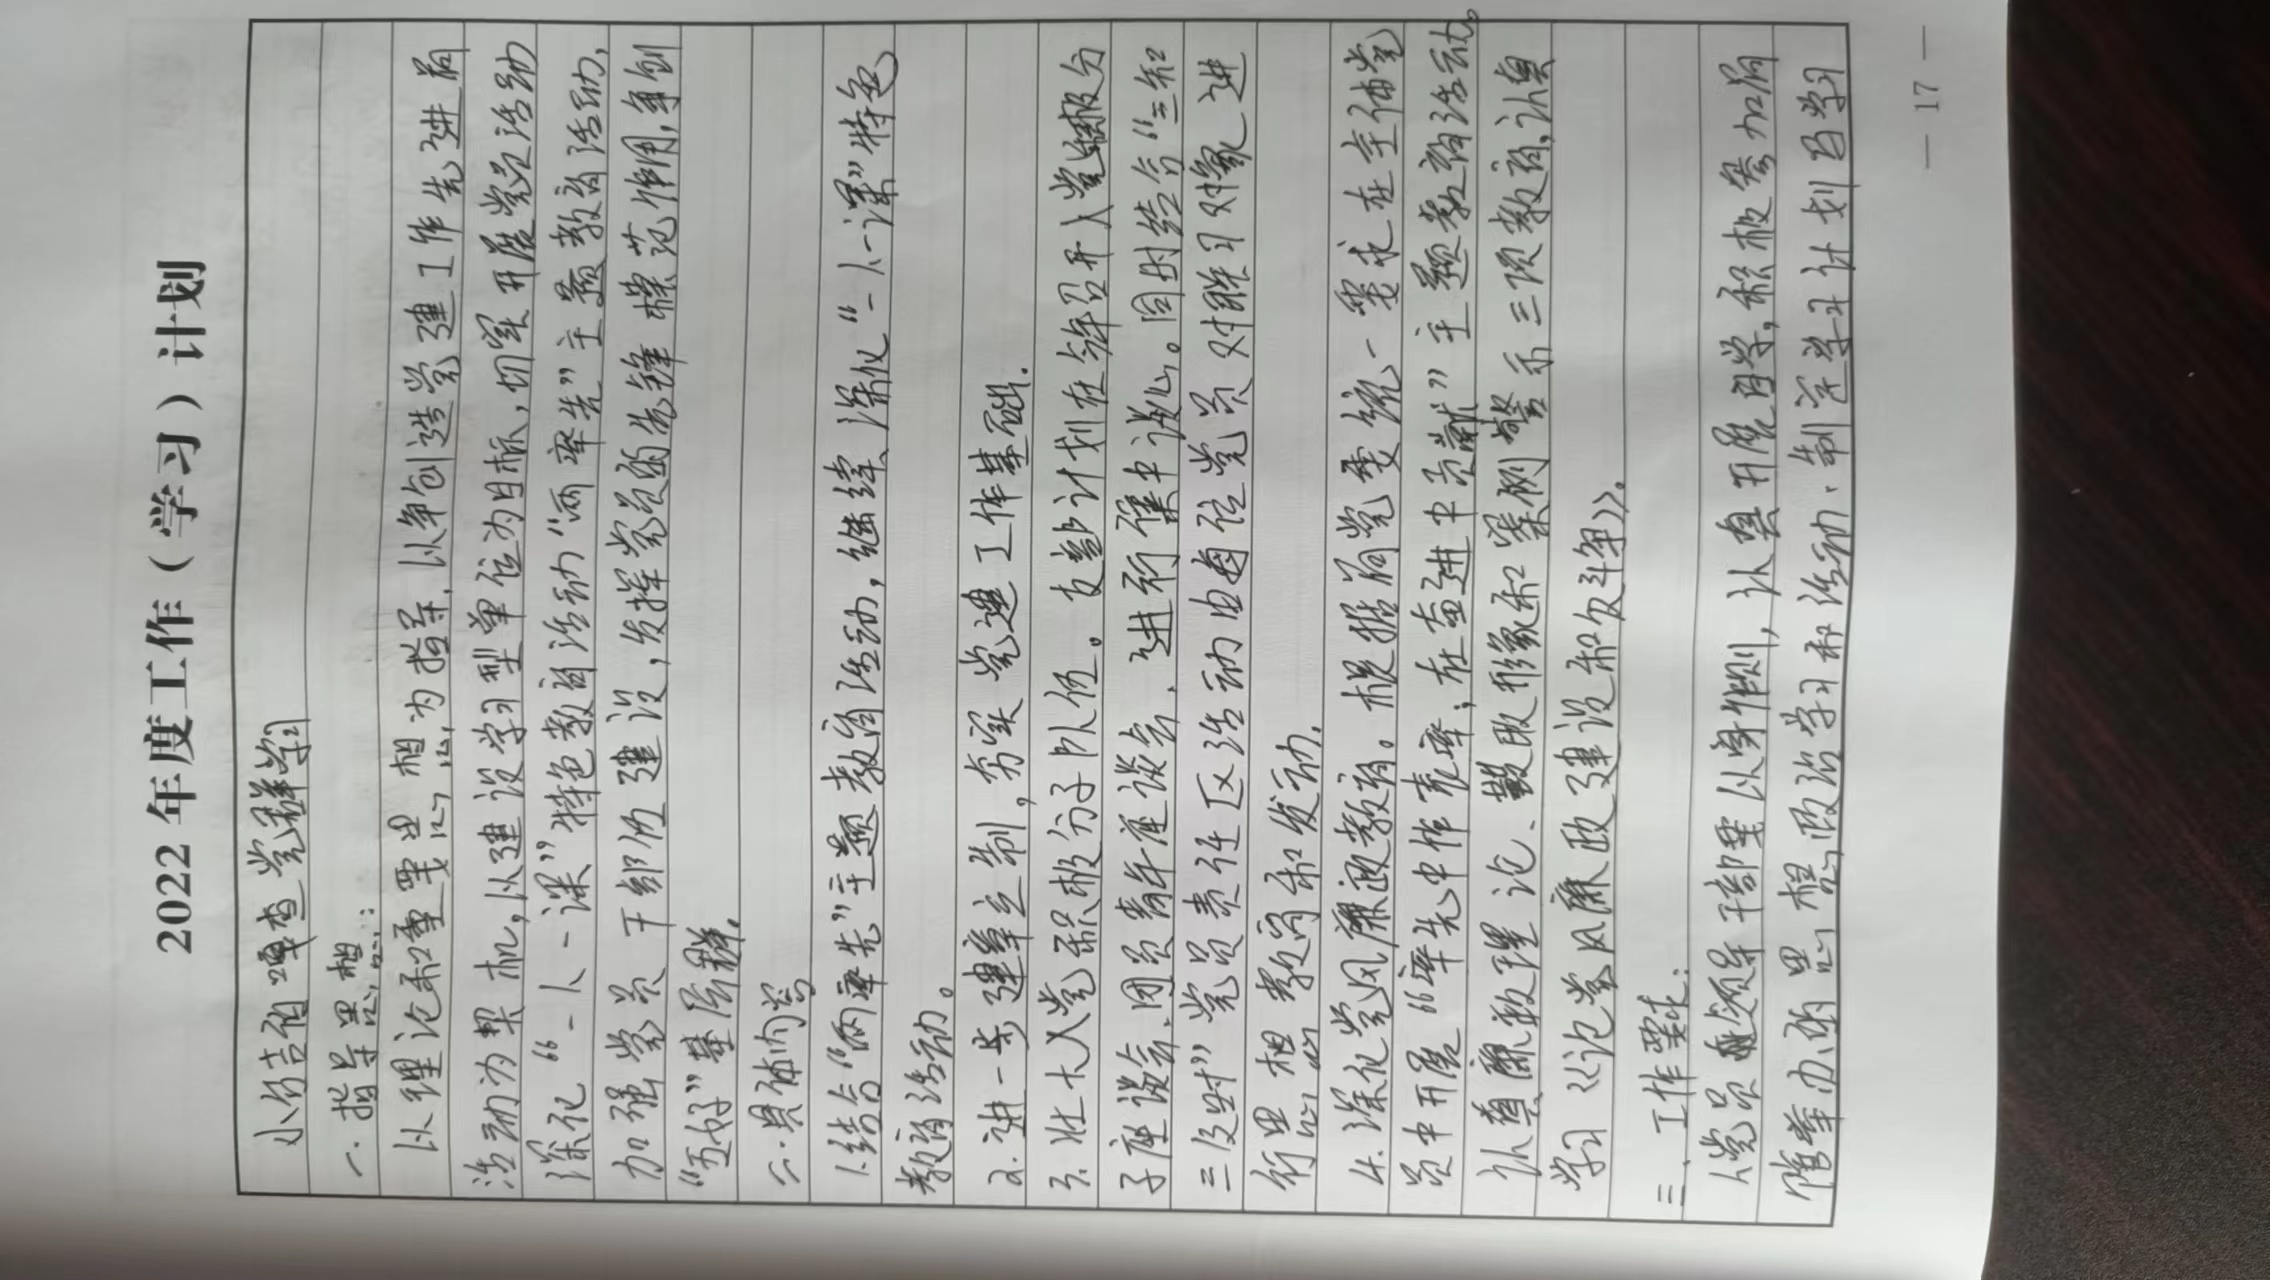 2022 年度工作（学习）计划
党群学习
一.指导思想:
以理论和重要思想为指导,以争创造党建工作先进局
活动为契机,以建设学习型单位为目标,切实开展党员活动
深化“一人一课”特色教育活动“两率先”主题教育活动,
加强党员干部队伍建设,发挥党员的先锋模范作用,争创
“五好”基层群.
二.具体内容
1.结合“两率先”主题教育活动,继续深化“一人一课”特色
教育活动。
2.进一步建章立制,夯实党建工作基础.
3.壮大入党积极分子队伍。支部计划在年召开入党积极分
子座谈会、团员青年座谈会,进行集中谈心。同时结合“三知
三及时”党员责任区活动由每位党员对联习对象进
行思想教育和发动.
4.深化党风廉政教育。根据局党委统一要求在全体党
员中开展“率先中作表率,在奋进中贡献”主题教育活动。
认真廉政理论、勤政形象和案例警示三项教育,认真
学习《论党风廉政建设和反斗争》.
三、工作要求:
1.党员领导干部要以身作则,认真开展自学,积极参加局
管举办的思想政治学习和活动.制定学习计划自学习
— 17 —